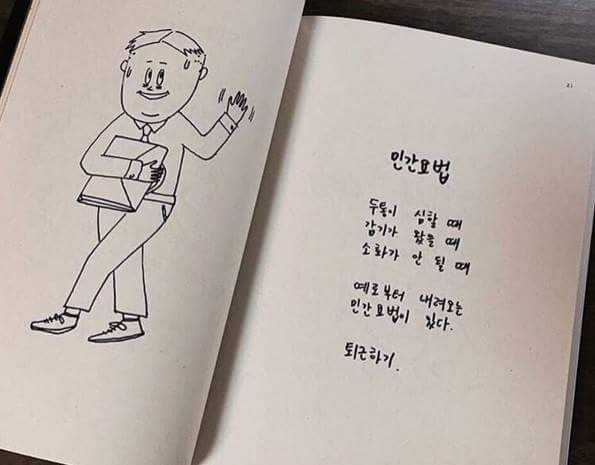 21
민간요법
두통이 심할 때
감기가 왔을 때
소화가 안 될 때
예로부터 내려오는
민간요법이 있다.
퇴근하기.